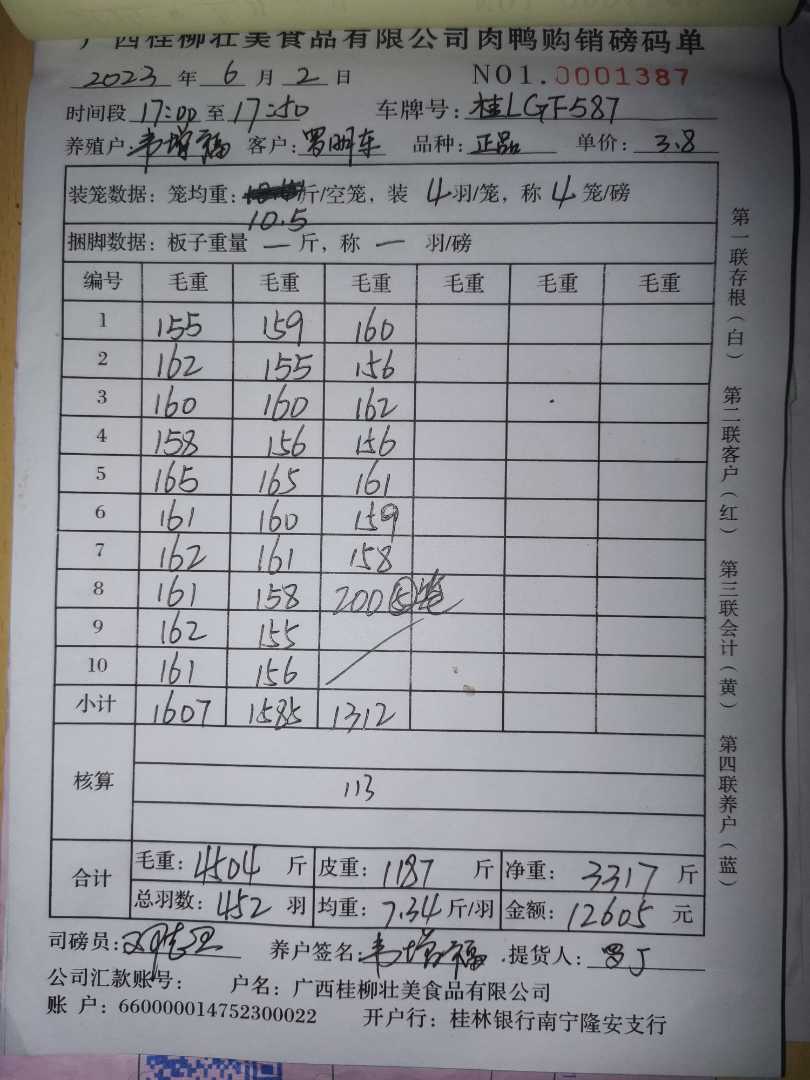 广西桂柳壮美食品有限公司肉鸭购销磅码单
2023 年 6 月 2 日 NO1.0001387
时间段 17:00 至 17:50 车牌号: 桂LGF587
养殖户: 韦增福 客户: 罗明东 品种: 正品 单价: 3.8
装笼数据: 笼均重: 斤/空笼, 装 4 羽/笼, 称 4 笼/磅
10.5
捆脚数据: 板子重量 一 斤, 称 一 羽/磅
编号 毛重 毛重 毛重 毛重 毛重 毛重
1 155 159 160
2 162 155 156
3 160 160 162
4 158 156 156
5 165 165 161
6 161 160 159
7 162 161 158
8 161 158 200 ⑤笼
9 162 155
10 161 156
小计 1607 1585 1312
核算 113
合计 毛重: 4504 斤 皮重: 1187 斤 净重: 3317 斤
总羽数: 452 羽 均重: 7.34 斤/羽 金额: 12605 元
司磅员: 养户签名: 韦增福 提货人: 罗
公司汇款账号: 户名: 广西桂柳壮美食品有限公司
账 户: 660000014752300022 开户行: 桂林银行南宁隆安支行
第一联存根(白) 第二联客户(红) 第三联会计(黄) 第四联养户(蓝)